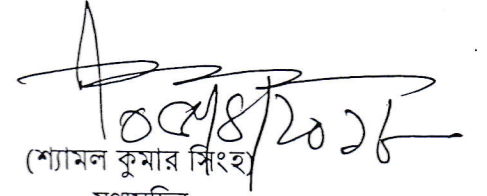 ০৫/৪/২০১৮
(শ্যামল কুমার সিংহ)